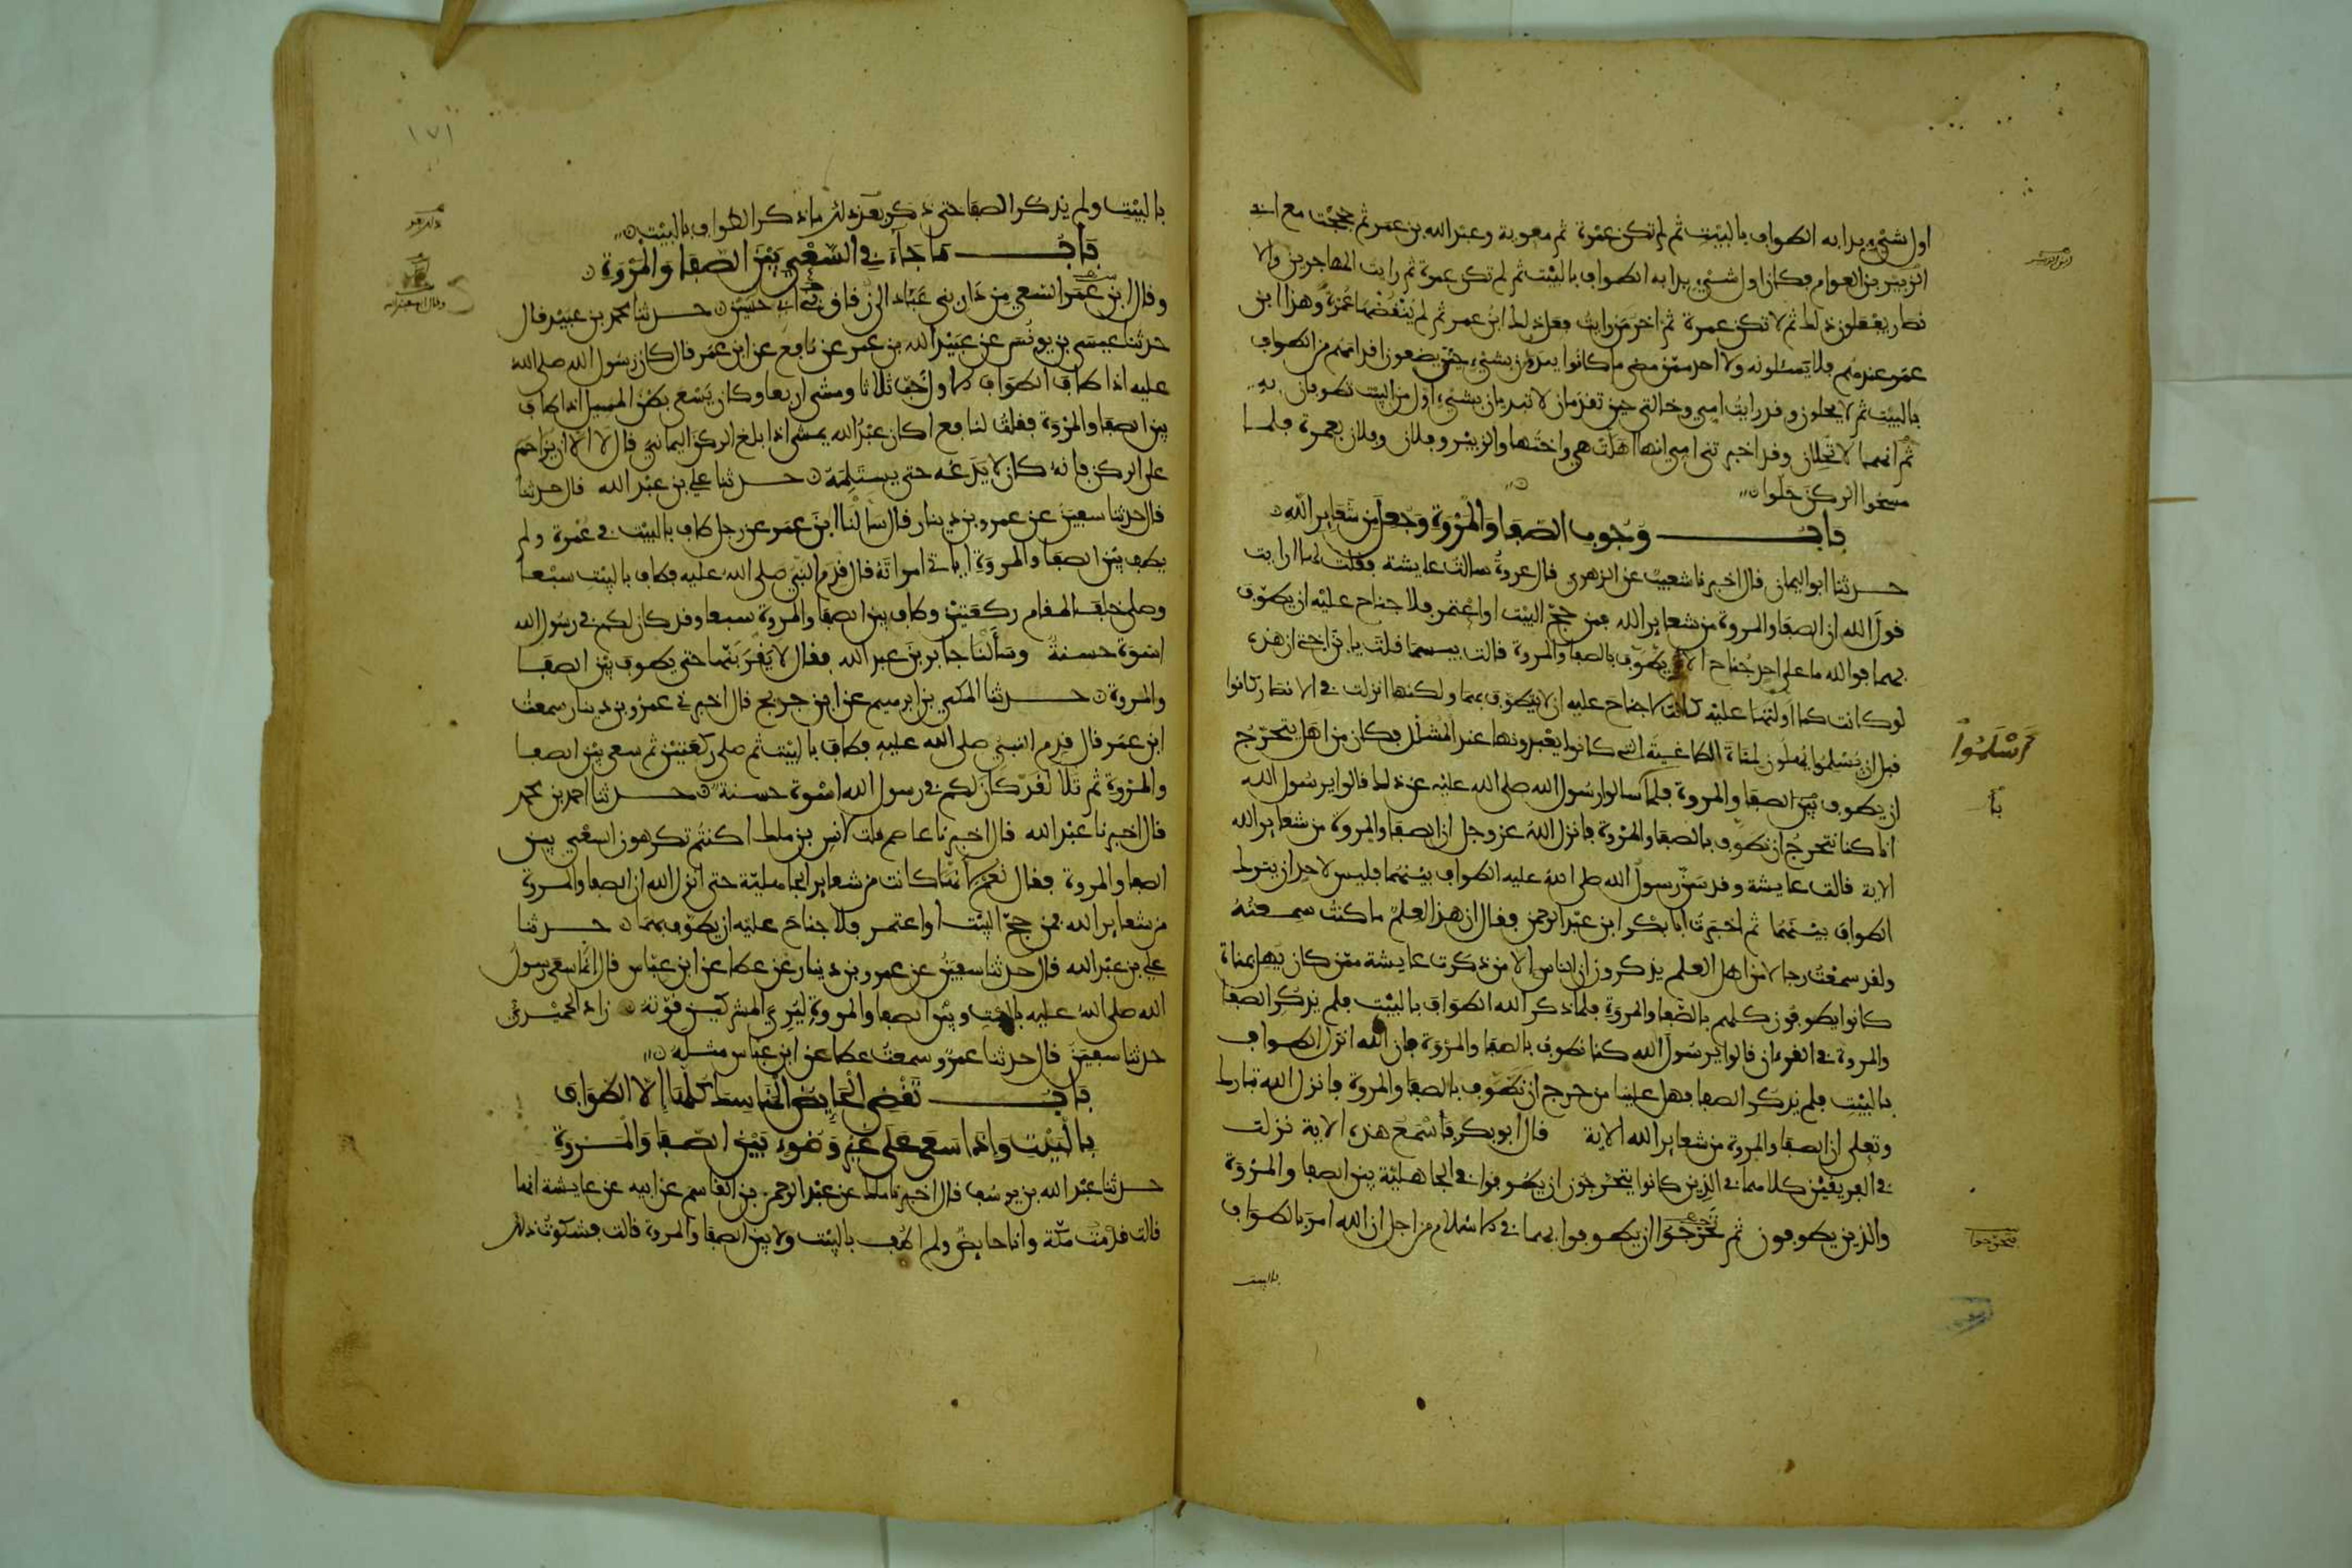 اول شيء بدا به الطواف بالبيت ثم لم تكن عمرة ثم معوية وعبد الله بن عمر ثم حججت مع ابي
الزبير بن العوام فكان اول شيء بدا به الطواف بالبيت ثم لم تكن عمرة ثم رايت المهاجرين والا
نصار يفعلون ذلك ثم لا تكن عمرة ثم اخر من رايت فعل ذلك ابن عمر ثم لم ينقضها عمرة وهذا ابن
عمر عندهم فلا يسئلونه ولا احد ممن مضى ما كانوا يبدءون بشيء حين يضعون اقدامهم من الطواف
بالبيت ثم لا يحلون وقد رايت امي وخالتي حين تقدمان لا تبدءان بشيء اول من البيت تطوفان به
ثم انهما لا تحلان وقد اخبرتني امي انها اهلت هي واختها والزبير وفلان وفلان بعمرة فلما
مسحوا الركن حلوا
باب وجوب الصفا والمروة وجعل من شعاير الله
حدثنا ابو اليمان قال اخبرنا شعيب عن الزهري قال عروة سالت عايشة فقلت لها ارايت
قول الله ان الصفا والمروة من شعاير الله فمن حج البيت او اعتمر فلا جناح عليه ان يطوف
بهما فوالله ما على احد جناح الا يطوف بالصفا والمروة قالت بيسما قلت يا بن اختي ان هذه
لو كانت كما اولتها عليه كانت لا جناح عليه ان لا يتطوف بهما ولكنها انزلت في الانصار كانوا
قبل ان يسلموا يهلون لمناة الطاغية التي كانوا يعبدونها عند المشلل فكان من اهل يتحرج
ان يطوف بين الصفا والمروة فلما سالوا رسول الله صلى الله عليه عن ذلك قالوا يرسول الله
انا كنا نتحرج ان نطوف بالصفا والمروة فانزل الله عز وجل ان الصفا والمروة من شعاير الله
الاية قالت عايشة وقد سن رسول الله صلى الله عليه الطواف بينهما فليس لاحد ان يترك
الطواف بينهما ثم اخبرت ابا بكر ابن عبد الرحمن فقال ان هذا العلم ما كنت سمعته
ولقد سمعت رجالا من اهل العلم يذكرون ان الناس الا من ذكرت عايشة ممن كان يهل بمناة
كانوا يطوفون كلهم بالصفا والمروة فلما ذكر الله الطواف بالبيت فلم يذكر الصفا
والمروة في القرءان قالوا يرسول الله كنا نطوف بالصفا والمروة وان الله انزل الطواف
بالبيت فلم يذكر الصفا فهل علينا من حرج ان نطوف بالصفا والمروة فانزل الله تبارك
وتعلى ان الصفا والمروة من شعاير الله الاية قال ابو بكر فاسمع هذه الاية نزلت
في الفريقين كلاهما في الذين كانوا يتحرجون ان يطوفوا في الجاهلية بين الصفا والمروة
والذين يطوفون ثم تحرجوا ان يطوفوا بهما في الاسلام من اجل ان الله امر بالطواف
بالبيت
اسلموا
با
يتحرجوا
١٧١
بالبيت ولم يذكر الصفا حتى ذكر بعد ذلك ما ذكر الطواف بالبيت
باب ما جاء في السعي بين الصفا والمروة
وقال ابن عمر السعي من دار بني عباد الى زقاق بني ابي حسين حدثنا محمد بن عبيد قال
حدثنا عيسى بن يونس عن عبيد الله بن عمر عن نافع عن ابن عمر قال كان رسول الله صلى الله
عليه اذا طاف الطواف الاول خب ثلاثا ومشى اربعا وكان يسعى بطن المسيل اذا طاف
بين الصفا والمروة فقلت لنافع اكان عبد الله يمشى اذا بلغ الركن اليماني قال لا الا ان يزاحم
على الركن فانه كان لا يدعه حتى يستلمه حدثنا علي بن عبد الله قال حدثنا
قال حدثنا سفين عن عمرو بن دينار قال سالنا ابن عمر عن رجل طاف بالبيت في عمرة ولم
يطف بين الصفا والمروة اياتي امراته قال قدم النبي صلى الله عليه فطاف بالبيت سبعا
وصلى خلف المقام ركعتين وطاف بين الصفا والمروة سبعا وقد كان لكم في رسول الله
اسوة حسنة وسالنا جابر بن عبد الله فقال لا يقربنها حتى يطوف بين الصفا
والمروة حدثنا المكي بن ابرهيم عن ابن جريج قال اخبرني عمرو بن دينار سمعت
ابن عمر قال قدم النبي صلى الله عليه فطاف بالبيت ثم صلى ركعتين ثم سعى بين الصفا
والمروة ثم تلا لقد كان لكم في رسول الله اسوة حسنة حدثنا احمد بن محمد
قال اخبرنا عبد الله قال اخبرنا عاصم قلت لانس بن ملك اكنتم تكرهون السعي بين
الصفا والمروة فقال نعم انها كانت من شعاير الجاهلية حتى انزل الله ان الصفا والمروة
من شعاير الله فمن حج البيت او اعتمر فلا جناح عليه ان يطوف بهما حدثنا
علي بن عبد الله قال حدثنا سفين عن عمرو بن دينار عن عطا عن ابن عباس قال انما سعى رسول
الله صلى الله عليه بالبيت وبين الصفا والمروة ليري المشركين قوته زاد الحميدي
حدثنا سفين قال حدثنا عمرو سمعت عطا عن ابن عباس مثله
باب تقضي الحايض المناسك كلها الا الطواف
بالبيت واذا سعى على غير وضوء بين الصفا والمروة
حدثنا عبد الله بن يوسف قال اخبرنا ملك عن عبد الرحمن بن القاسم عن ابيه عن عايشة انها
قالت قدمت مكة وانا حايض ولم اطف بالبيت ولا بين الصفا والمروة قالت فشكوت ذلك